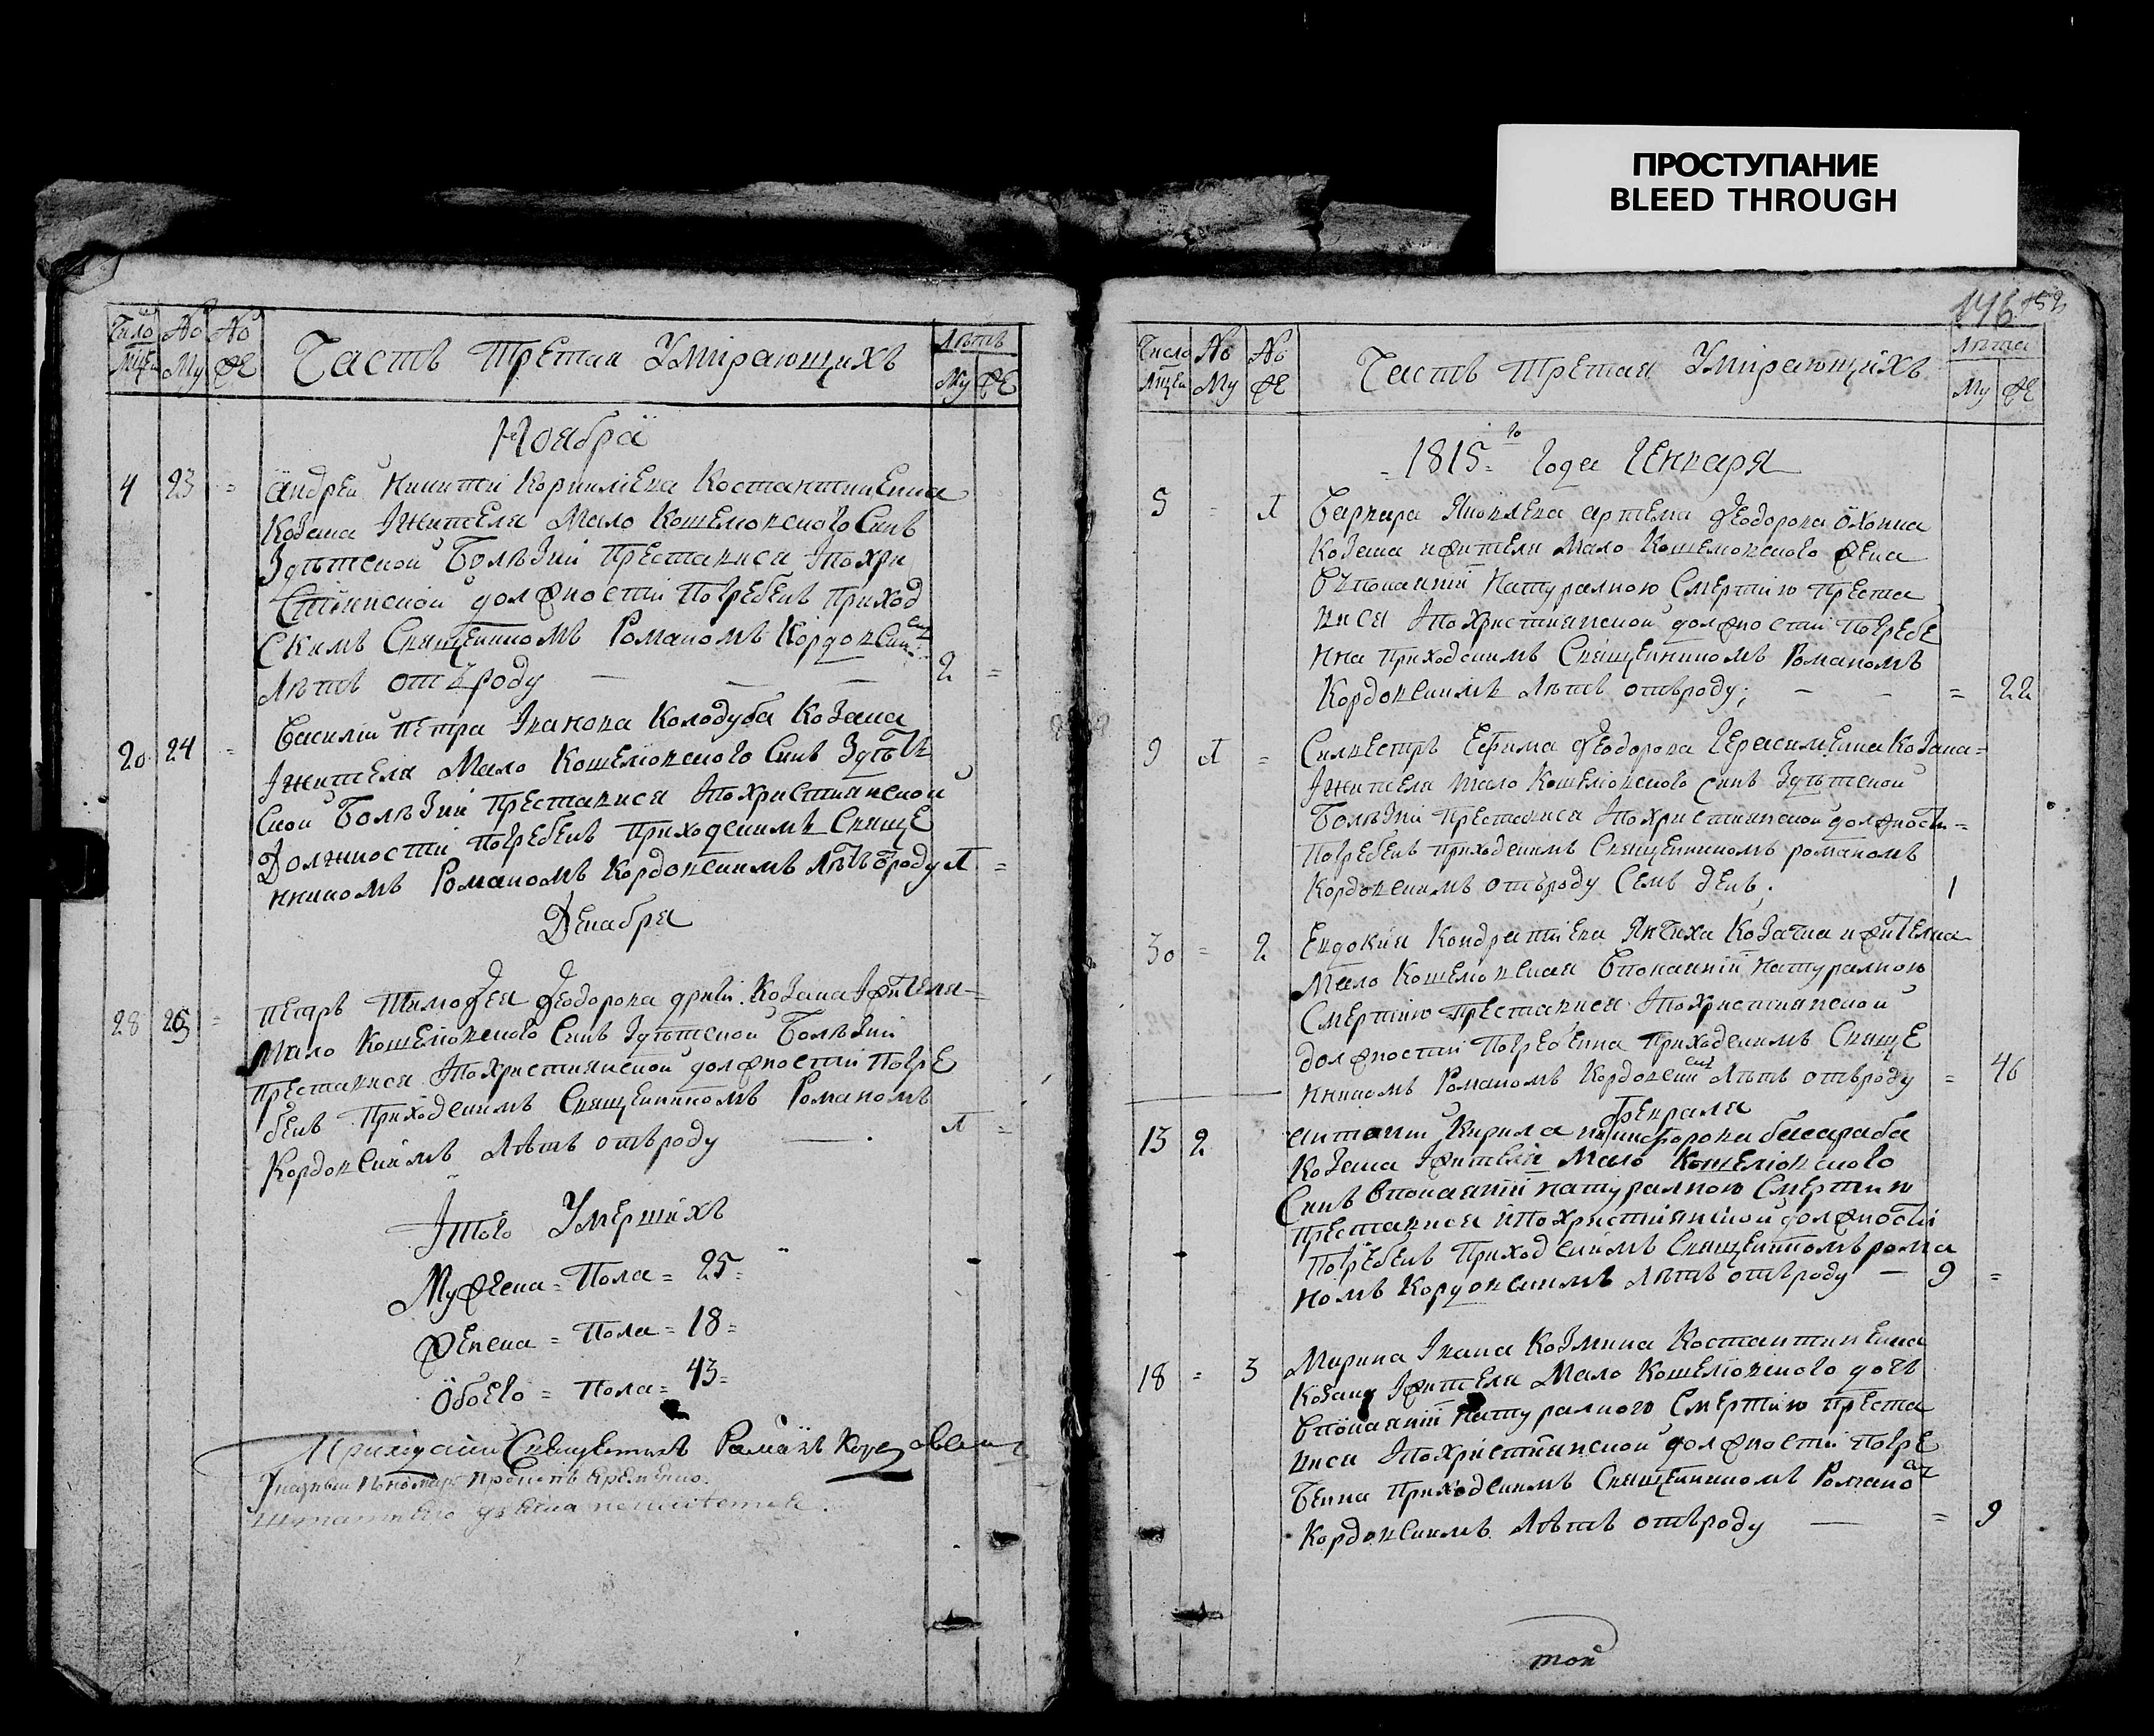 ПРОСТУПАНИЕ
BLEED THROUGH
Число No No
Мцей Му ЖЕ
Часть Третая Умирающихъ
Лѣтъ
Му ЖЕ
Ноября
4 23 =
Андрей Никиты Корнилиева Костантиненка
Козака Жителя Мало Кошелювского Синъ
Здѣтской Болѣзни Преставися Ипохри
стиянской должности Погребенъ Приход
Скимъ Священникомъ Романомъ Кордовскимъ
Лѣтъ отъ роду — — — 2 =
20 24 =
Василий Петра Іванова Колодуба Козака
Іжителя Мало Кошелювского Синъ Здѣт
ской Болѣзни Преставися Ипохристиянской
Должности погребенъ приходскимъ Свяще
нникомъ Романомъ Кордовскимъ Лѣтъ ѿроду 1 =
Декабря
28 25 =
Петръ Тимофея Феодорова Козака Іжителя
Мало Кошелювского Синъ Здѣтской Болѣзни
Преставися Ипохристиянской должности Погре
бенъ Приходскимъ Священникомъ Романомъ
Кордовскимъ Лѣтъ отъ роду — 1 =
Итого Умершихъ
Мужеска = Пола = 25 =
Женска = Пола = 18 =
Обоего = Пола = 43 =
Приходский Священникъ Романъ Кордовский
146 152
Число No No
Мцей Му ЖЕ
Часть Третая Умирающихъ
Лѣта
Му ЖЕ
1815го Года Генваря
5 = 1
Варвара Яковлева Артема Феодорова
Козака ижителя Мало Кошелювского жена
Въпокаянии Натуралною Смертию Преста
вися Ипохристиянской должности Погребе
нна Приходскимъ Священникомъ Романомъ
Кордовскимъ Лѣтъ отъ роду; — — = 22
9 1 =
Силвестръ Ефима Феодорова Герасименка Козака =
Іжителя Мало Кошелювского Синъ Здѣтской
Болѣзни Преставися Ипохристиянской должности =
Погребенъ приходскимъ Священникомъ романомъ
Кордовскимъ отъ роду Семъ денъ. 1
30 = 2
Евдокия Кондратиева Козачка ижителка
Мало Кошелювская Впокаянии натуралною
Смертию преставися Ипохристиянской
должности Погребенна Приходскимъ Свяще
нникомъ Романомъ Кордовскимъ Лѣтъ отъ роду = 46
Февраля
13 2
Антоний Кирила Никифорова басараба
Козака Іжителя Мало Кошелювского
Синъ Впокаянии натуралною Смертию
Преставися Ипохристиянской должности
Погребенъ Приходскимъ Священникомъ рома
номъ Кордовскимъ Лѣтъ отъ роду — 9 =
18 = 3
Марина Івана Козмина Костантиненка
Козака Іжителя Мало Кошелювского дочъ
Впокаянии Натуралного Смертию преста
вися Ипохристиянской должности Погре
бенна Приходскимъ Священникомъ Романомъ
Кордовскимъ Лѣтъ отъ роду — = 9
той